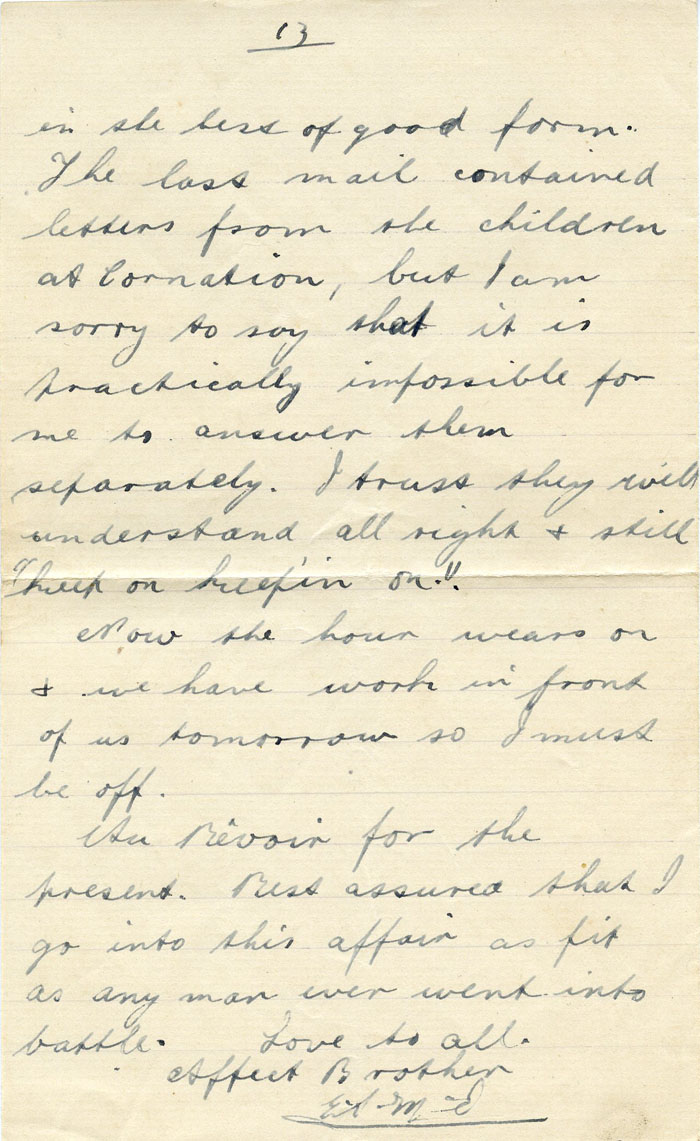 13
in the best of good form.
The last mail contained
letters from the children
at Cornation, but I am
sorry to say that it is
practically impossible for
me to answer them
separately. I trust they will
understand all right & still
"keep on keepin on."
Now the hour wears on
& we have work in front
of us tomorrow so I must
be off.
Au Révoir for the
present. Rest assured that I
go into this affair as fit
as any man ever went into
battle. Love to all.
Affect Brother